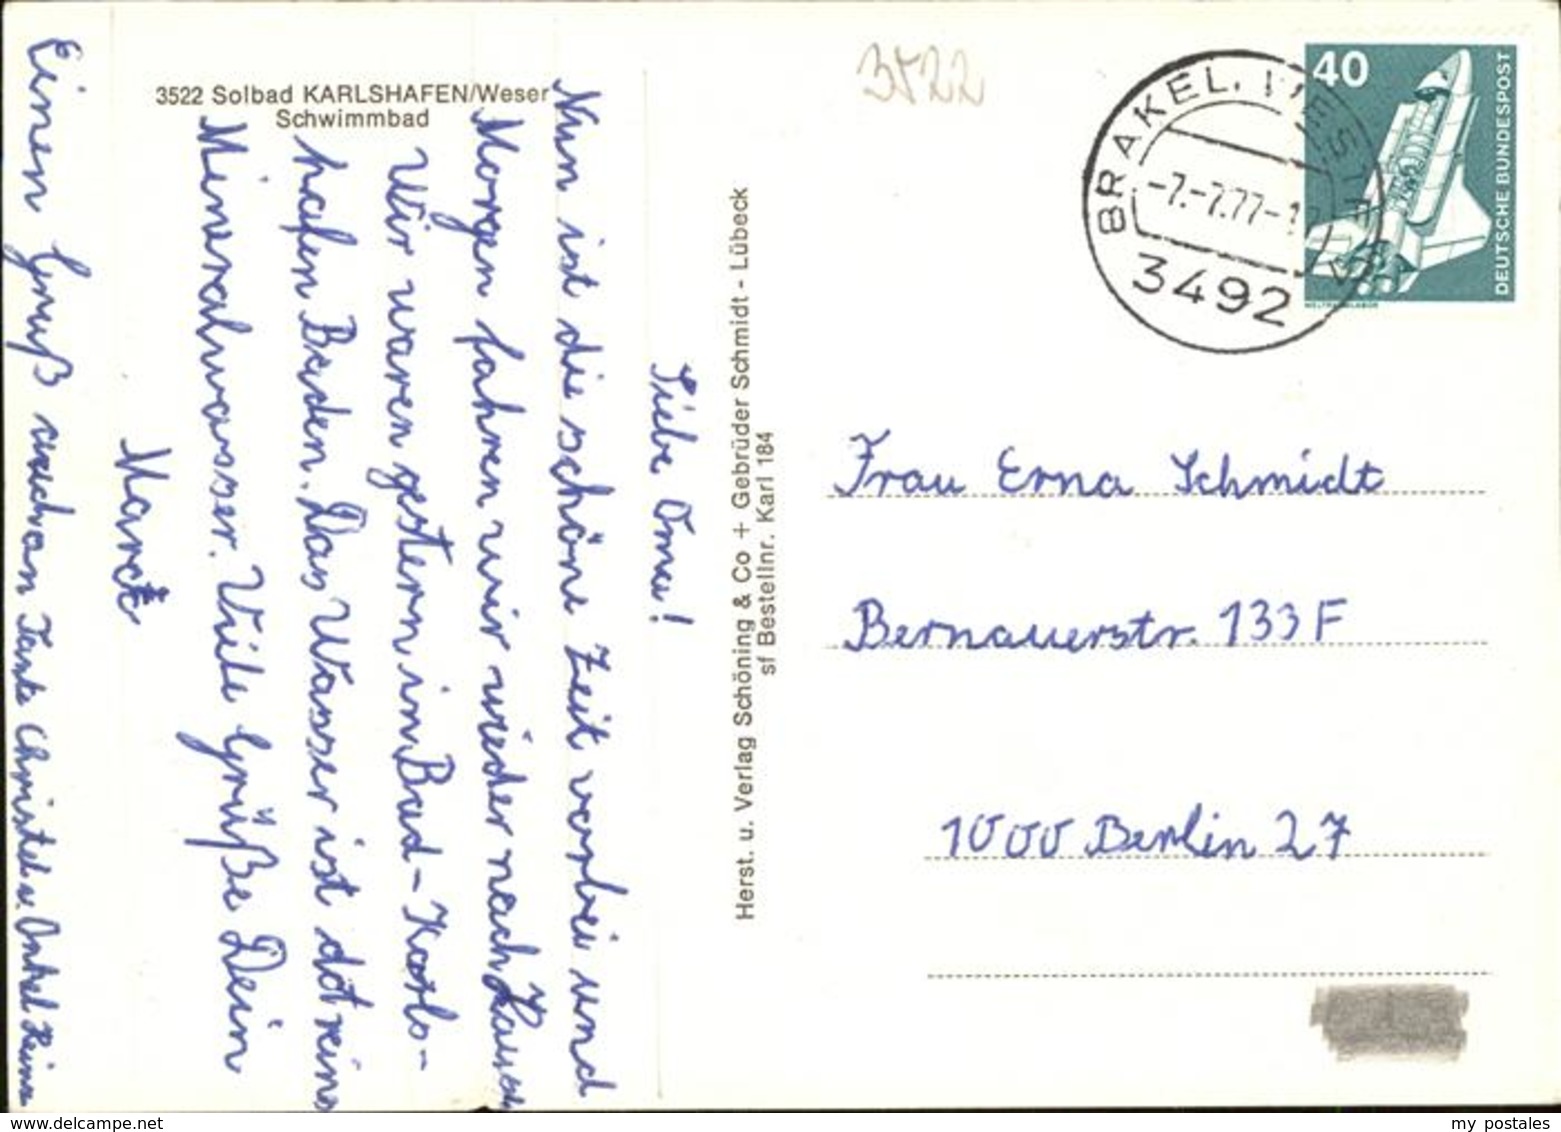 3522 Solbad KARLSHAFEN/Weser
Schwimmbad
Liebe Oma!
Nun ist die schöne Zeit vorbei und
Morgen fahren wir wieder nach Hause
Wir waren gestern in Bad-Karls-
hafen Baden. Das Wasser ist dot reins
Mineralwasser. Viele Grüße Dein
Einen Gruß auch an Tante Christel u. Onkel Heinz
Herst. u. Verlag Schöning & Co + Gebrüder Schmidt - Lübeck
sf Bestellnr. Karl 184
3522
BRAKEL, WESTF
-7.-7.77-1
3492
40
DEUTSCHE BUNDESPOST
WELTRAUMLABOR
Frau Erna Schmidt
Bernauerstr. 133 F
1000 Berlin 27
www.delcampe.net
my postales